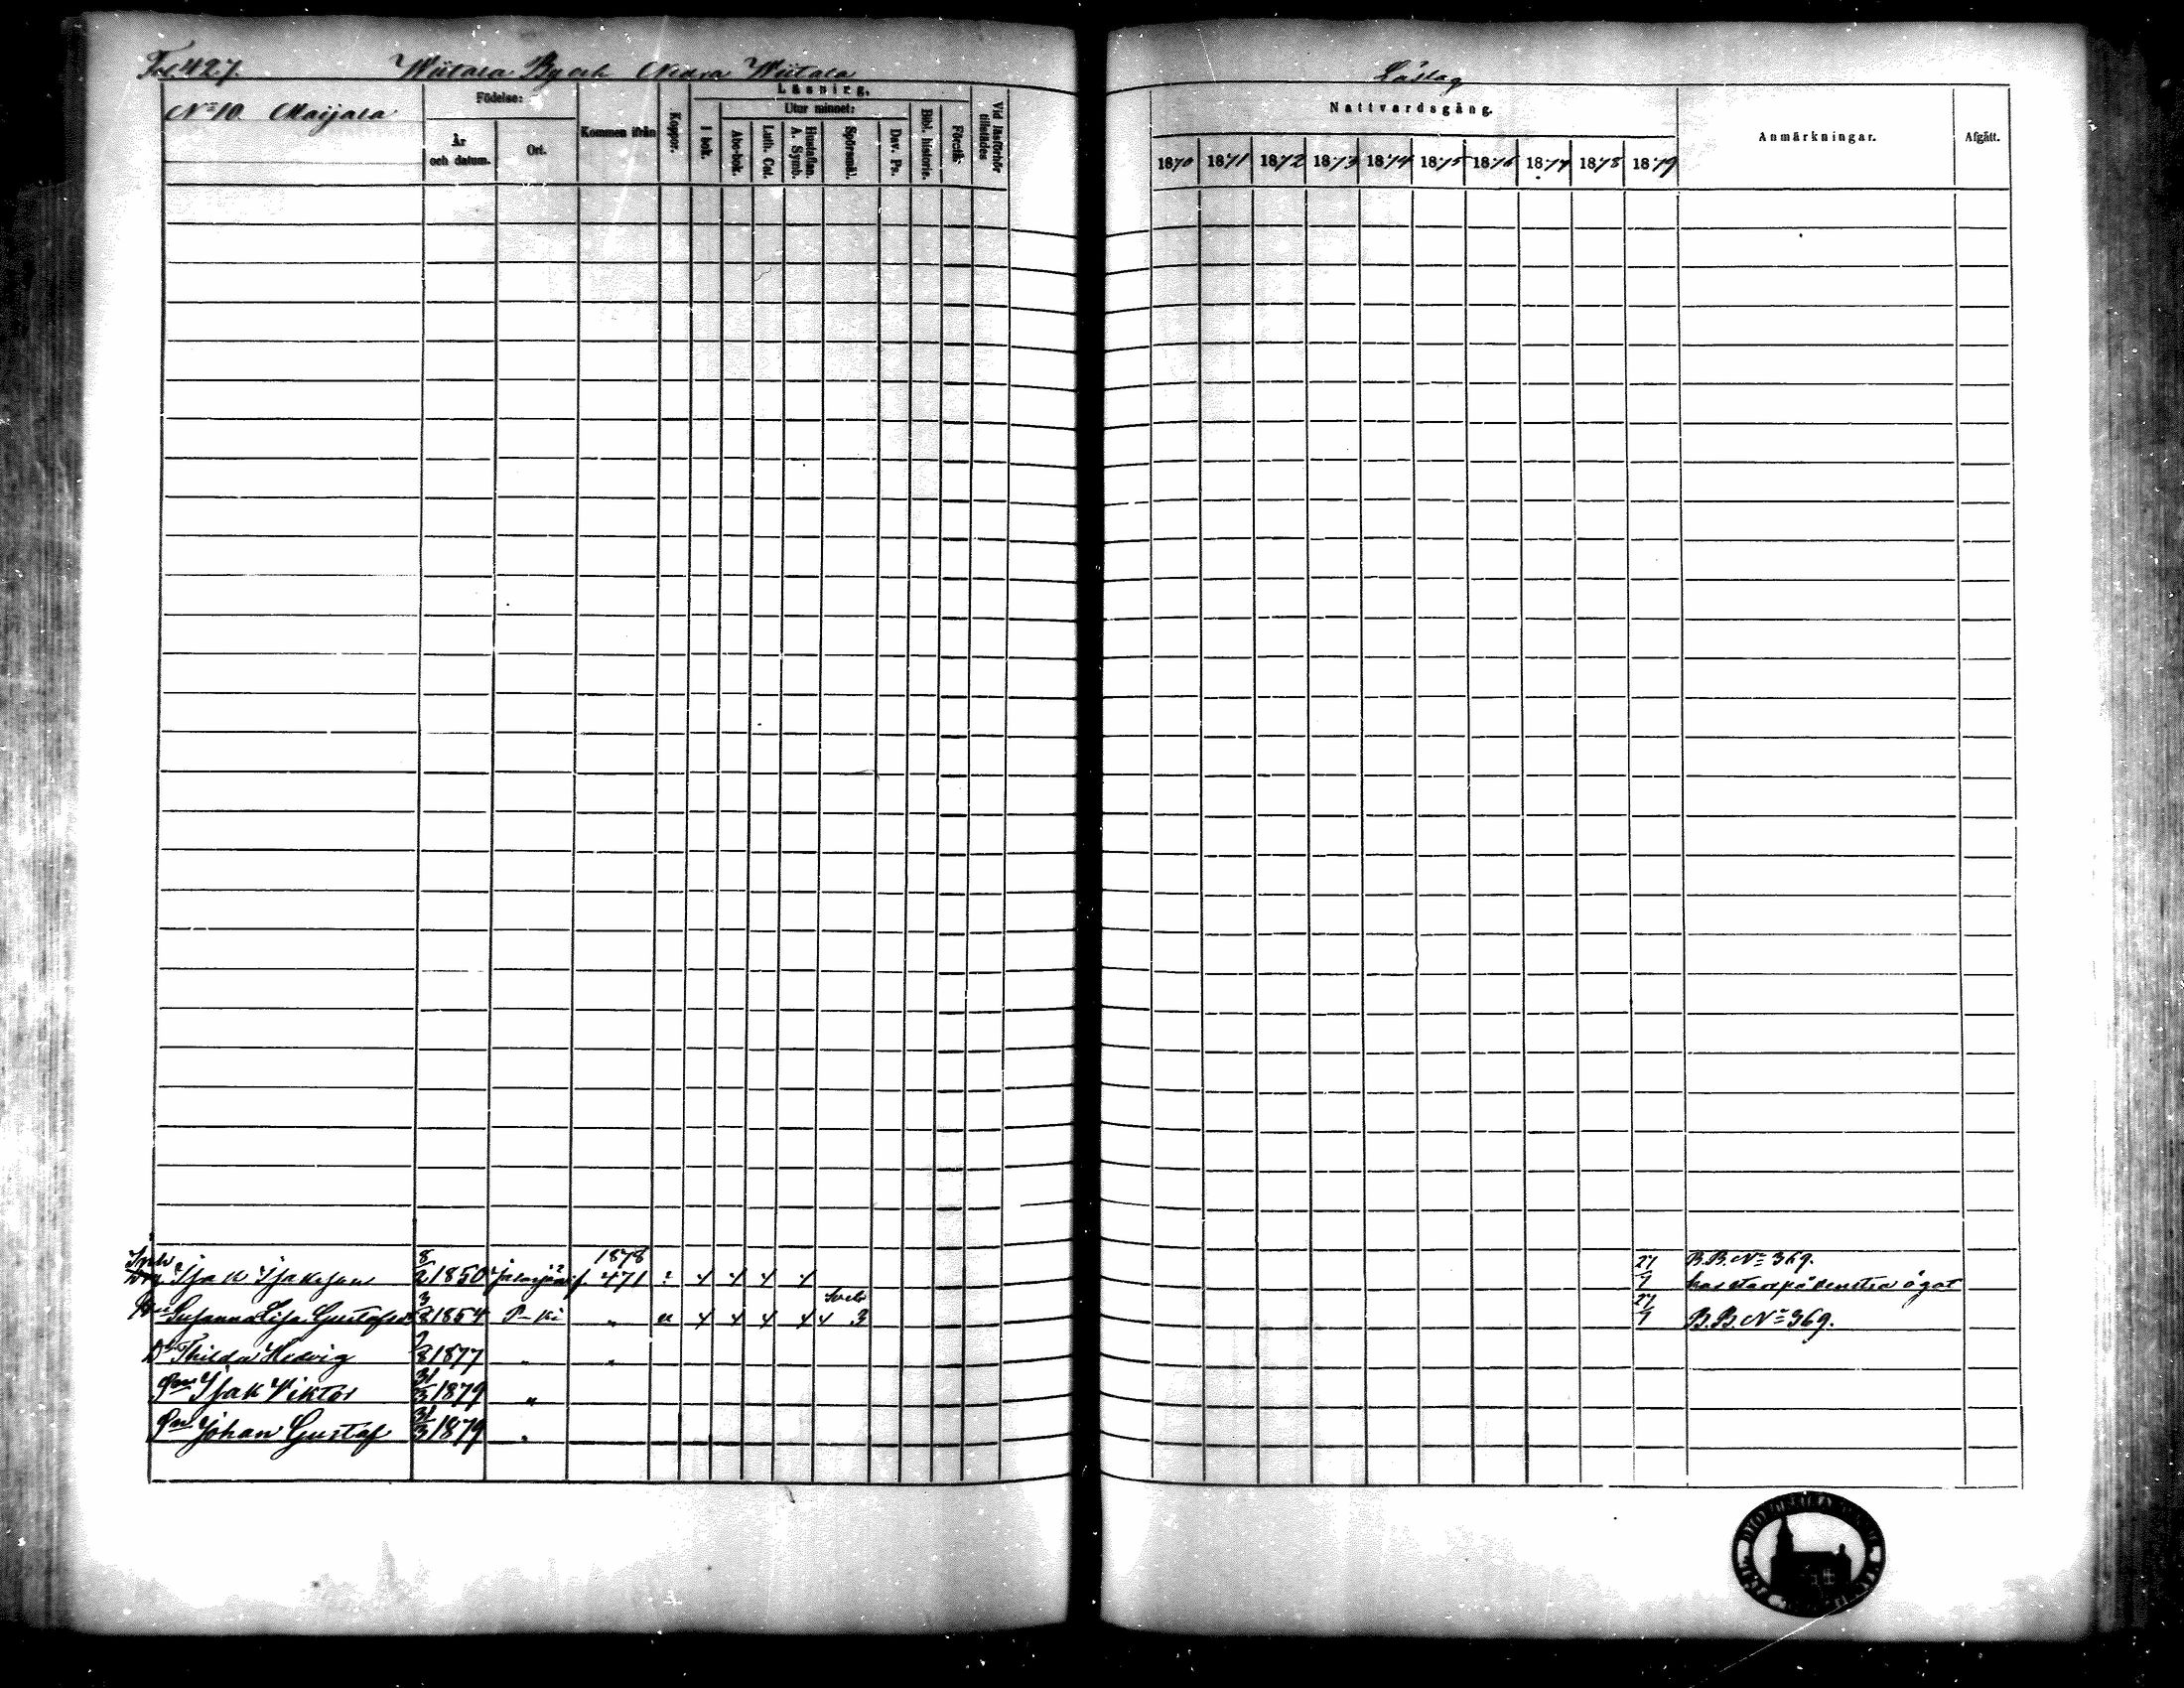 Fol. 427. Wiitala By och Nedra Wiitala Låslag
No 10 Maijala
Födelse:
År och datum.
Ort.
Kommen ifrån
Koppor.
Läsning.
I bok.
Utur minnet:
Abc-bok.
Luth. Cat.
Hustaflan. A. Symb.
Spörsmål.
Dav. Ps.
Bibl. historie.
Förstår
Vid läsförhör tillstädes
Nattvardsgång.
1870 1871 1872 1873 1874 1875 1876 1877 1878 1879
Anmärkningar.
Afgått.
Inh. Isak Isaksson 8/2 1850 f. 1878 471 27/7 B.B. No 369.
har starr på venstra ögat
Susanna Lisa Gustafsd. 3/8 1854 P-ki " 27/7 B.B. No 369.
Dr Thilda Hedvig 1877 " "
Son Isak Viktor 31/3 1879 "
Son Johan Gustaf 31/3 1879 "